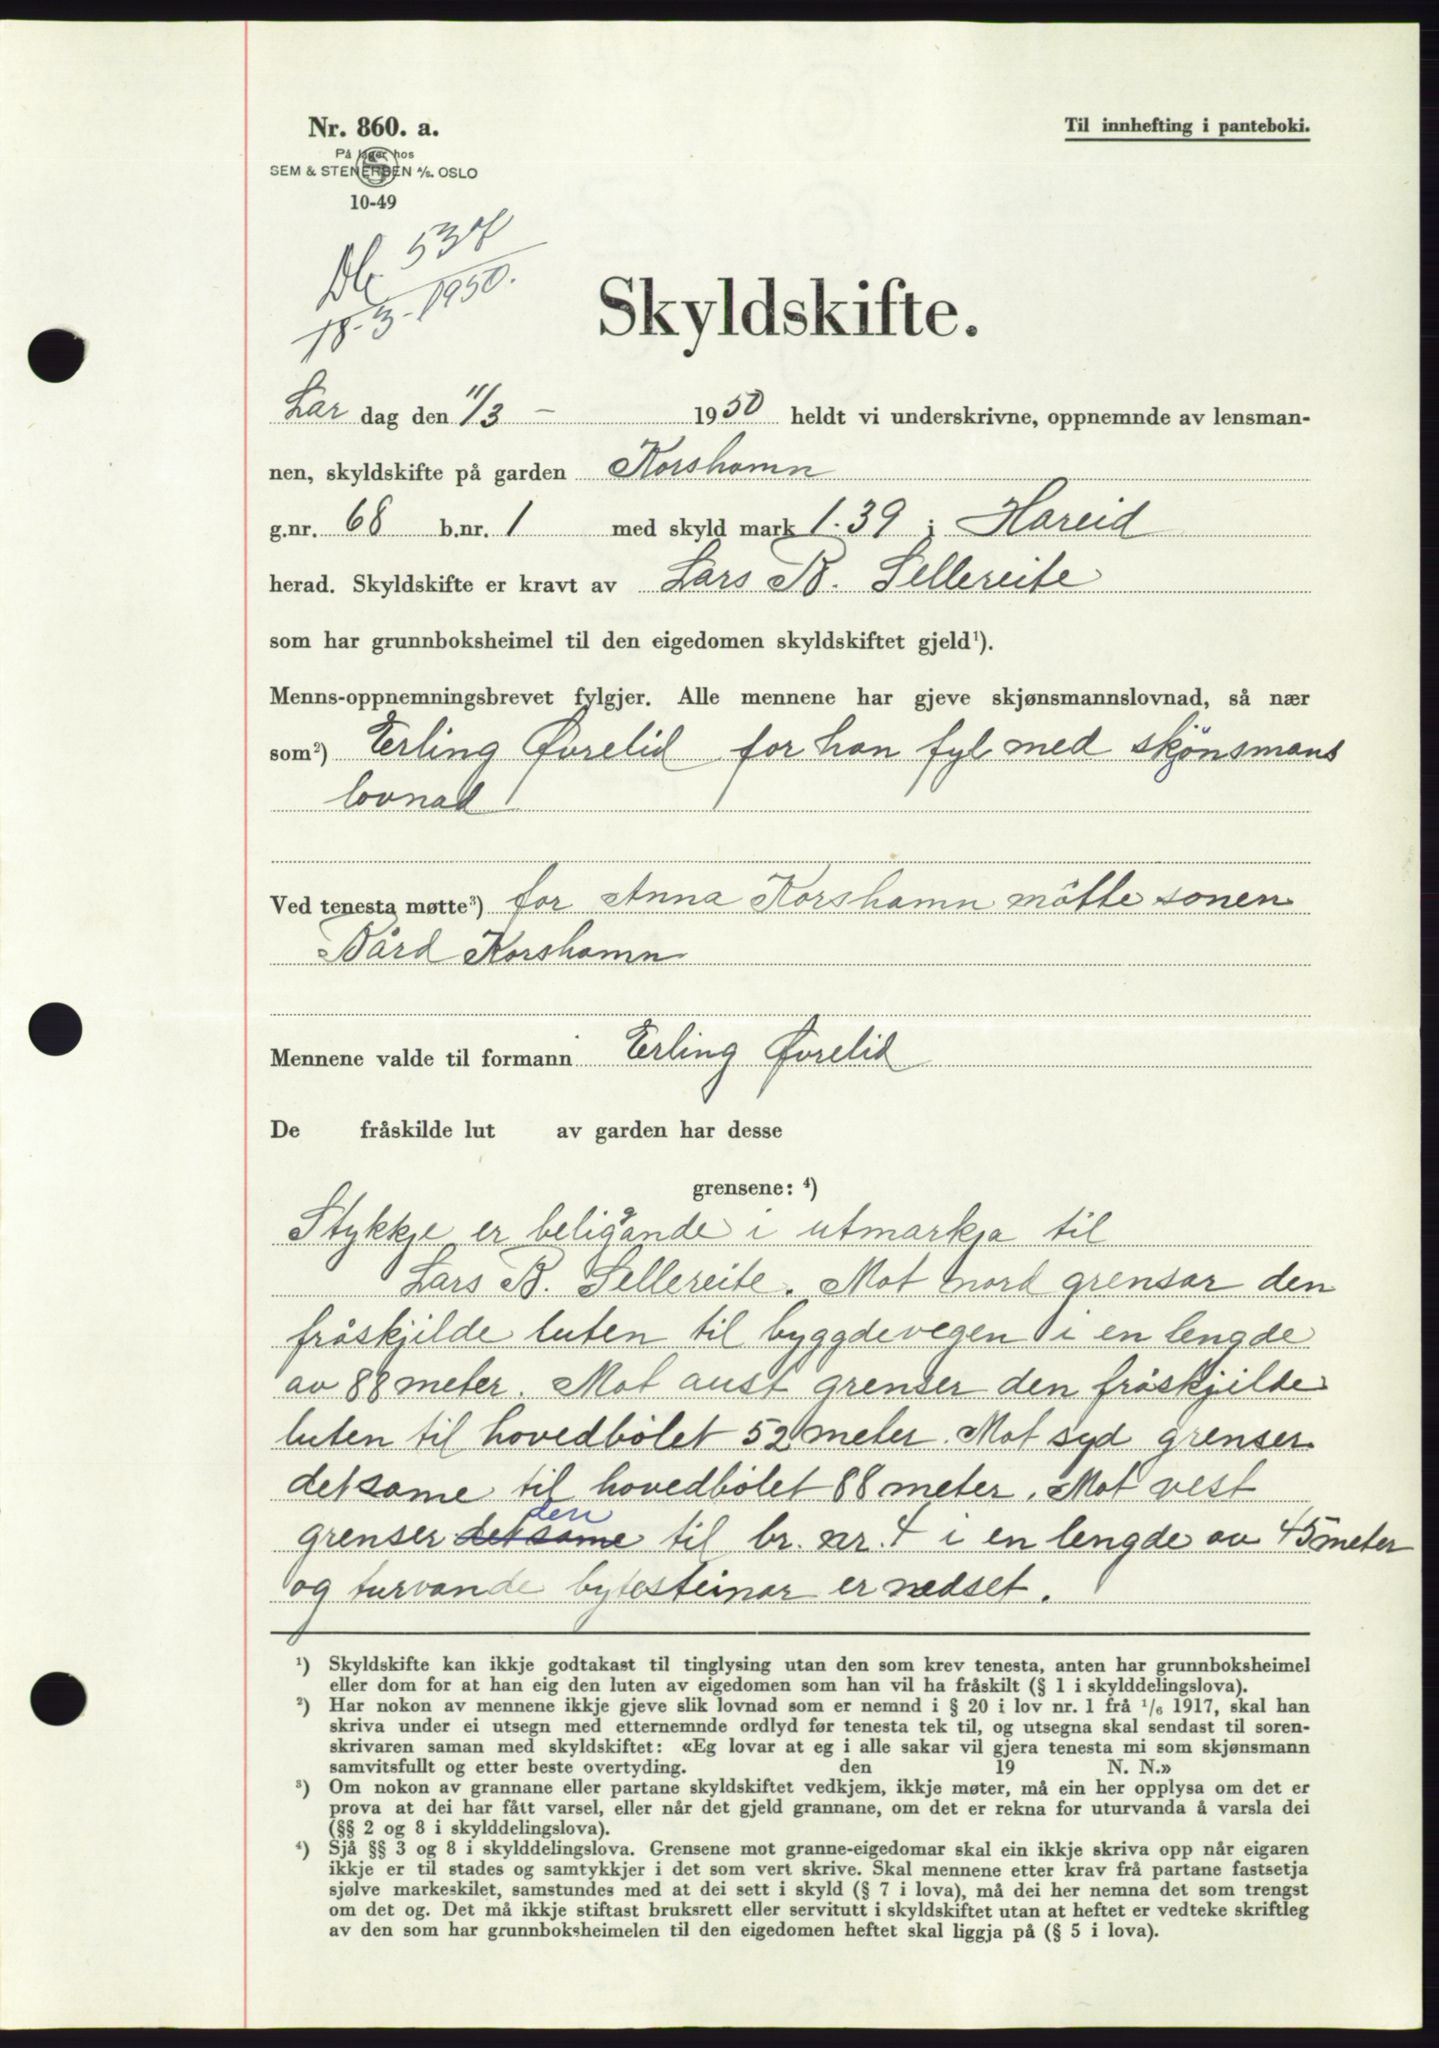 Nr. 860. a.
På lager hos
SEM & STENERSEN A/S. OSLO
10-49
Til innhefting i panteboki.
Db. 537
18-3-1950.
Skyldskifte.
Lar dag den 11/3 - 1950 heldt vi underskrivne, oppnemnde av lensman-
nen, skyldskifte på garden Korshamn
g.nr. 68 b.nr. 1 med skyld mark 1.39 i Hareid
herad. Skyldskifte er kravt av Lars B. Sellereite
som har grunnboksheimel til den eigedomen skyldskiftet gjeld¹).
Menns-oppnemningsbrevet fylgjer. Alle mennene har gjeve skjønsmannslovnad, så nær
som²) Erling Øvrelid for han fyl med skjönsmans
lovnad
Ved tenesta møtte³) for Anna Korshamn mötte sonen
Bård Korshamn
Mennene valde til formann Erling Øvrelid
De fråskilde lut av garden har desse
grensene: ⁴)
Stykkje er beliggande i utmarkja til
Lars B. Sellereite. Mot nord grensar den
fråskjilde luten til byggdevegen i en lengde
av 88 meter. Mot aust grenser den fråskjilde
luten til hovedbölet 52 meter. Mot syd grenser
detsame til hovedbölet 88 meter. Mot vest
grenser detsame den til br. nr. 4 i en lengde av 45 meter
og turvande bytesteinar er nedset.
¹) Skyldskifte kan ikkje godtakast til tinglysing utan den som krev tenesta, anten har grunnboksheimel
eller dom for at han eig den luten av eigedomen som han vil ha fråskilt (§ 1 i skylddelingslova).
²) Har nokon av mennene ikkje gjeve slik lovnad som er nemnd i § 20 i lov nr. 1 frå 1/6 1917, skal han
skriva under ei utsegn med etternemnde ordlyd før tenesta tek til, og utsegna skal sendast til soren-
skrivaren saman med skyldskiftet: «Eg lovar at eg i alle sakar vil gjera tenesta mi som skjønsmann
samvitsfullt og etter beste overtyding. den 19 N. N.»
³) Om nokon av grannane eller partane skyldskiftet vedkjem, ikkje møter, må ein her opplysa om det er
prova at dei har fått varsel, eller når det gjeld grannane, om det er rekna for uturvanda å varsla dei
(§§ 2 og 8 i skylddelingslova).
⁴) Sjå §§ 3 og 8 i skylddelingslova. Grensene mot granne-eigedomar skal ein ikkje skriva opp når eigaren
ikkje er til stades og samtykkjer i det som vert skrive. Skal mennene etter krav frå partane fastsetja
sjølve markeskilet, samstundes med at dei sett i skyld (§ 7 i lova), må dei her nemna det som trengst
om det og. Det må ikkje stiftast bruksrett eller servitutt i skyldskiftet utan at heftet er vedteke skriftleg
av den som har grunnboksheimelen til den eigedomen heftet skal liggja på (§ 5 i lova).